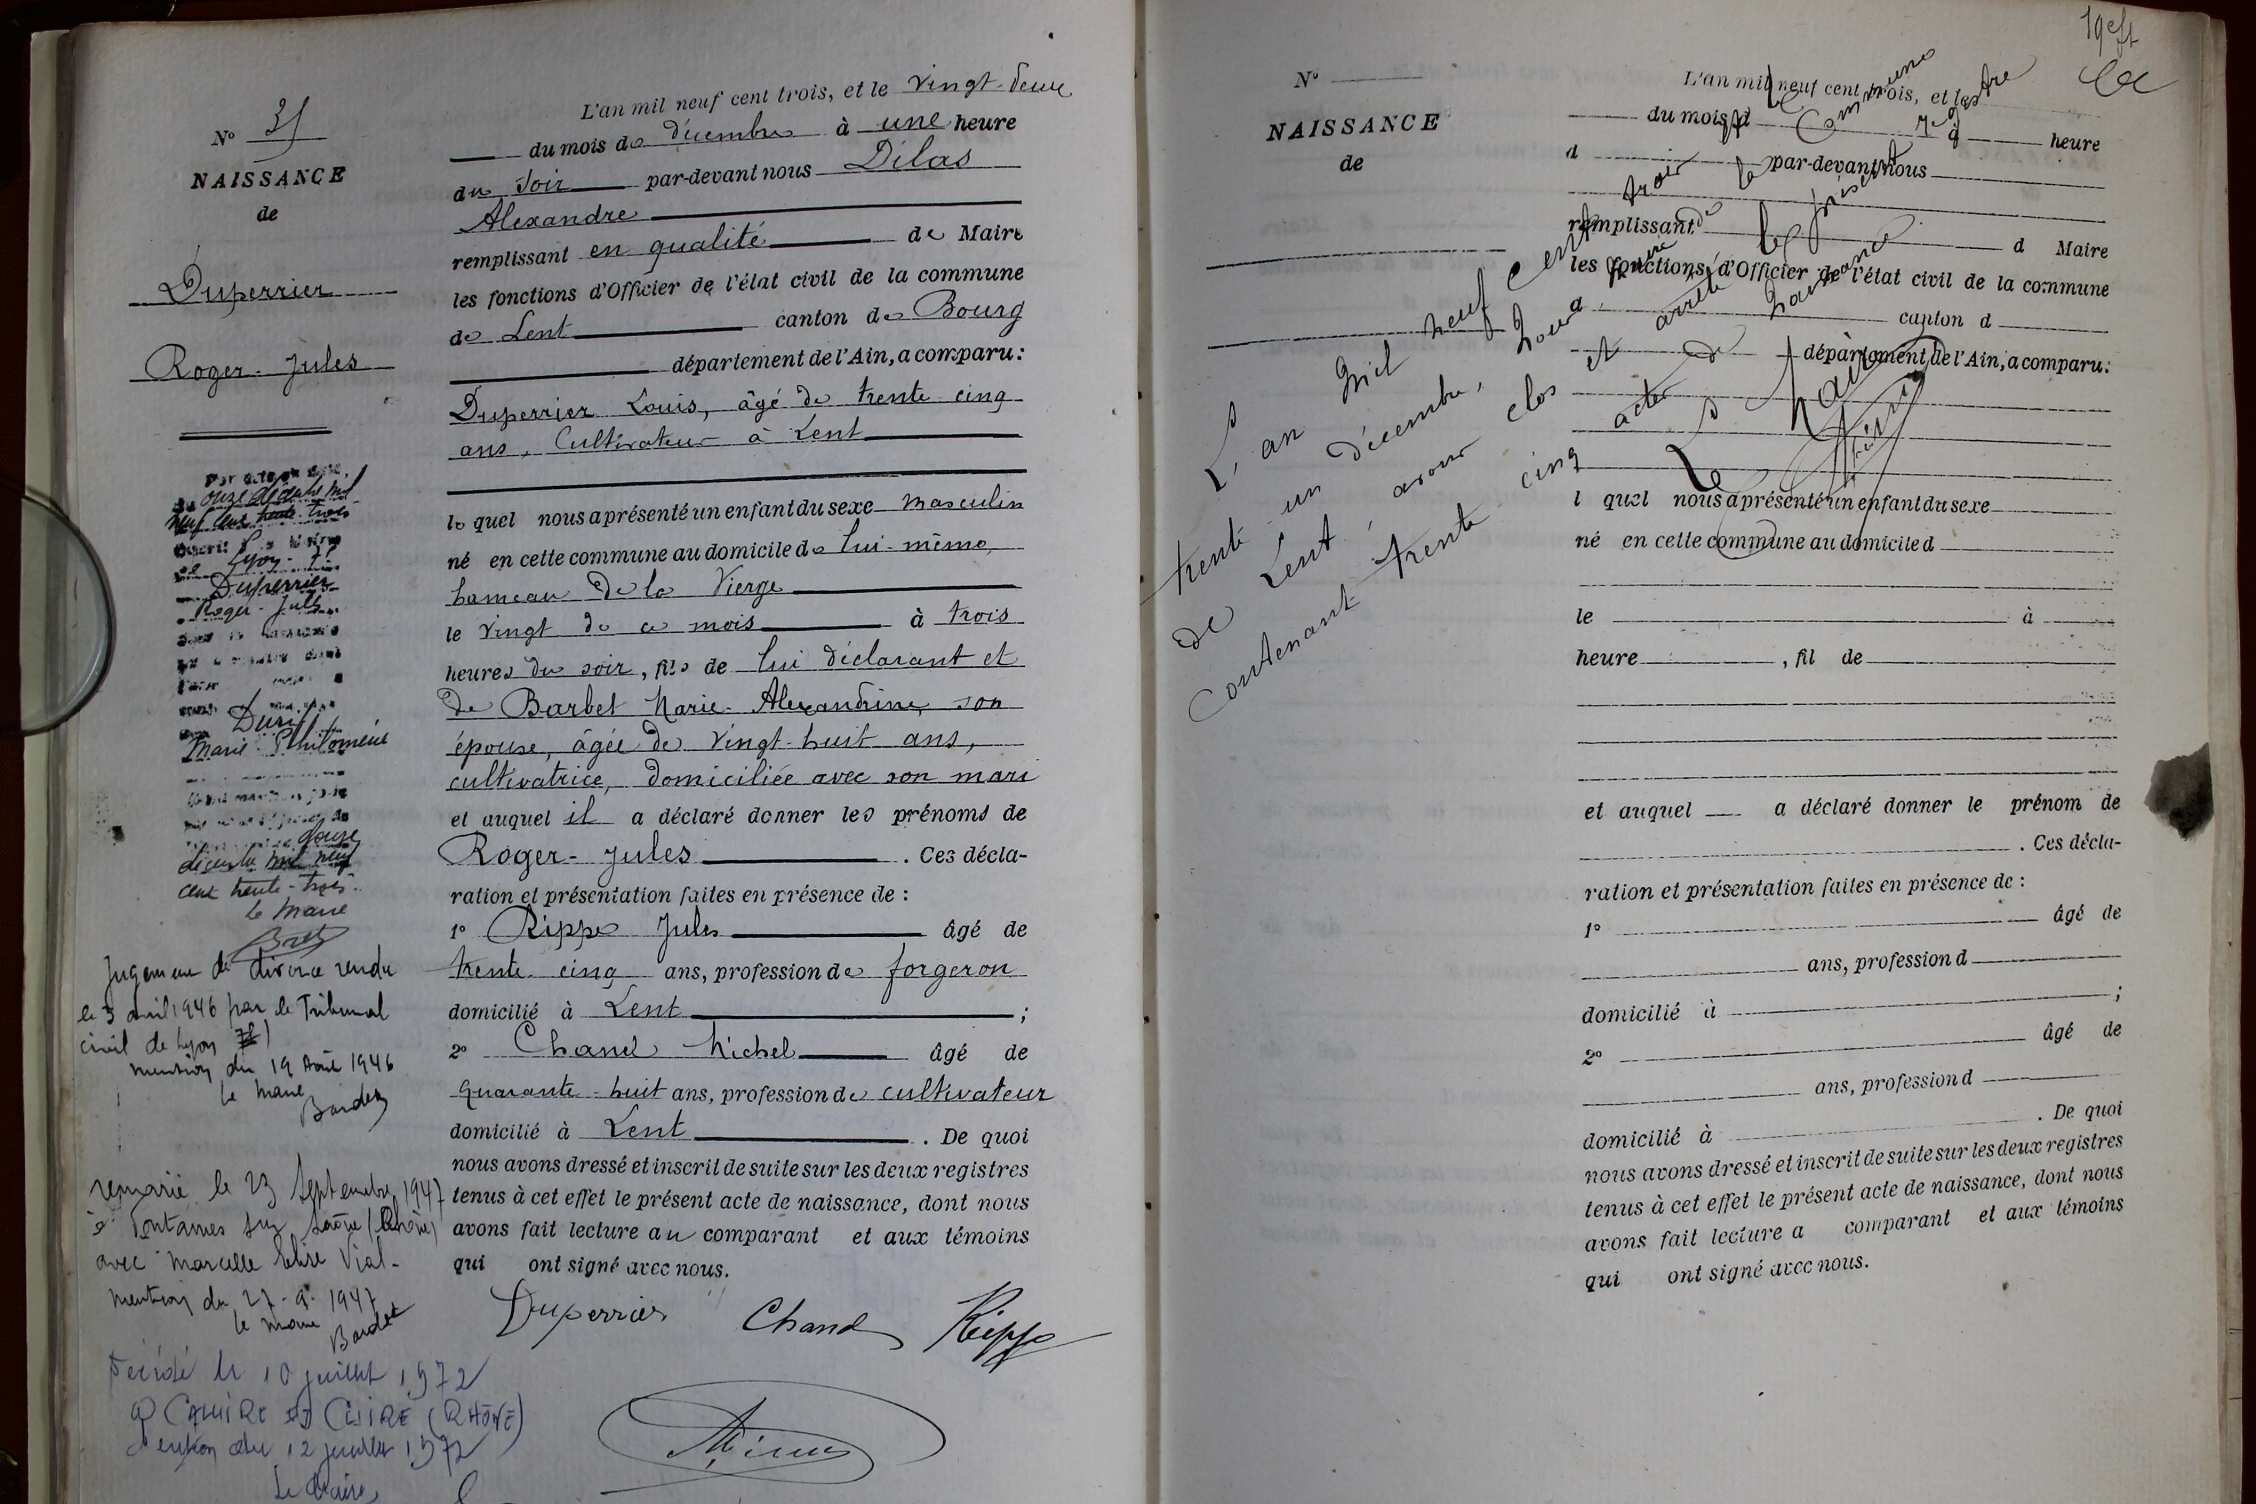 N° 35
NAISSANCE
de
Duperrier
Roger-Jules
onze décembre mil
neuf cent trente-trois
Lyon
Duperrier
Roger-Jules
Marie Philomène
douze
décembre mil neuf
cent trente-trois
le maire
Jugement de divorce rendu
le 3 avril 1946 par le Tribunal
civil de Lyon
mention du 19 Août 1946
le maire
remarié le 23 Septembre 1947
à Fontaines sur Saône (Rhône)
avec Marcelle Vial-
mention du 27-9-1947
le maire
Décédé le 10 juillet 1972
à CALUIRE ET CUIRE (RHÔNE)
mention du 12 juillet 1972
Le Maire,
L'an mil neuf cent trois, et le vingt-deux
du mois de décembre à une heure
du soir par-devant nous Dilas
Alexandre
remplissant en qualité de Maire
les fonctions d'Officier de l'état civil de la commune
de Lent canton de Bourg
département de l'Ain, a comparu:
Duperrier Louis, âgé de trente cinq
ans, Cultivateur à Lent
lequel nous a présenté un enfant du sexe masculin
né en cette commune au domicile de lui-même,
hameau de la Vierge
le vingt de ce mois à trois
heures du soir, fils de lui déclarant et
de Barbet Marie-Alexandrine, son
épouse, âgée de vingt-huit ans,
cultivatrice, domiciliée avec son mari
et auquel il a déclaré donner les prénoms de
Roger-Jules. Ces décla-
ration et présentation faites en présence de :
1° Rippe Jules âgé de
trente cinq ans, profession de forgeron
domicilié à Lent ;
2° Chanel Michel âgé de
quarante-huit ans, profession de cultivateur
domicilié à Lent. De quoi
nous avons dressé et inscrit de suite sur les deux registres
tenus à cet effet le présent acte de naissance, dont nous
avons fait lecture au comparant et aux témoins
qui ont signé avec nous.
Duperrier Chanel Rippe
N°
NAISSANCE
de
L'an mil neuf cent trois, et le
du mois d à heure
d par-devant nous
remplissant d Maire
les fonctions d'Officier de l'état civil de la commune
canton d
département de l'Ain, a comparu:
l quel nous a présenté un enfant du sexe
né en cette commune au domicile d
le à
heure , fil de
et auquel a déclaré donner le prénom de
. Ces décla-
ration et présentation faites en présence de :
1° âgé de
ans, profession d
domicilié à ;
2° âgé de
ans, profession d
domicilié à . De quoi
nous avons dressé et inscrit de suite sur les deux registres
tenus à cet effet le présent acte de naissance, dont nous
avons fait lecture a comparant et aux témoins
qui ont signé avec nous.
L'an mil neuf cent trois le
trente-un décembre, Nous, Maire de la Commune
de Lent, avons clos et arrêté le présent registre
contenant trente cinq actes de naissance
Le Maire